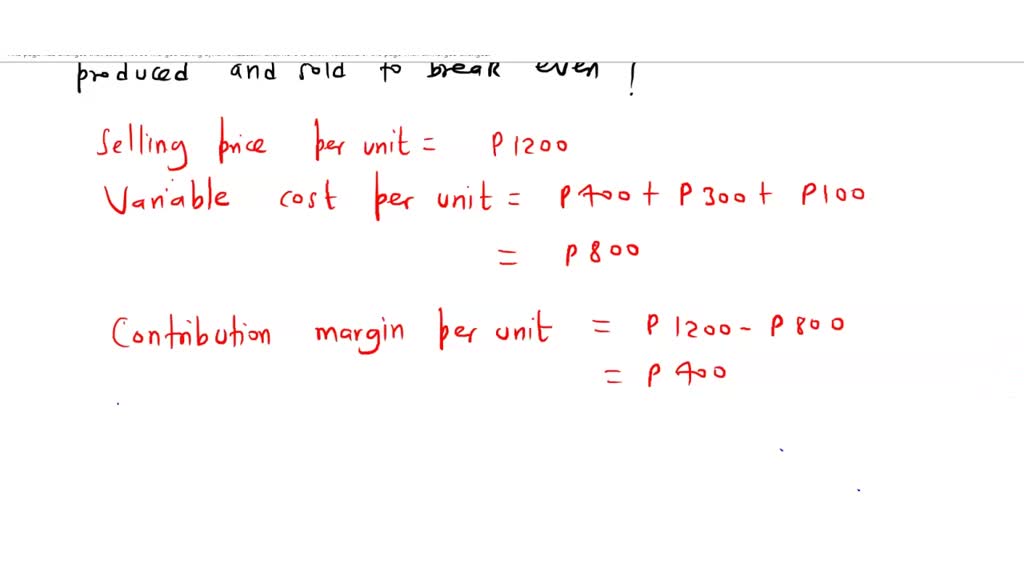 produced and sold to break even !
Selling price per unit = P 1200
Variable cost per unit = P 400 + P 300 + P 100
= P 800
Contribution margin per unit = P 1200 - P 800
= P 400